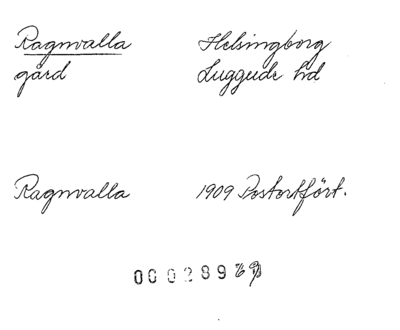 Ragnvalla Helsingborg
gård Luggude hd
Ragnvalla 1909 Postortfört.
000289